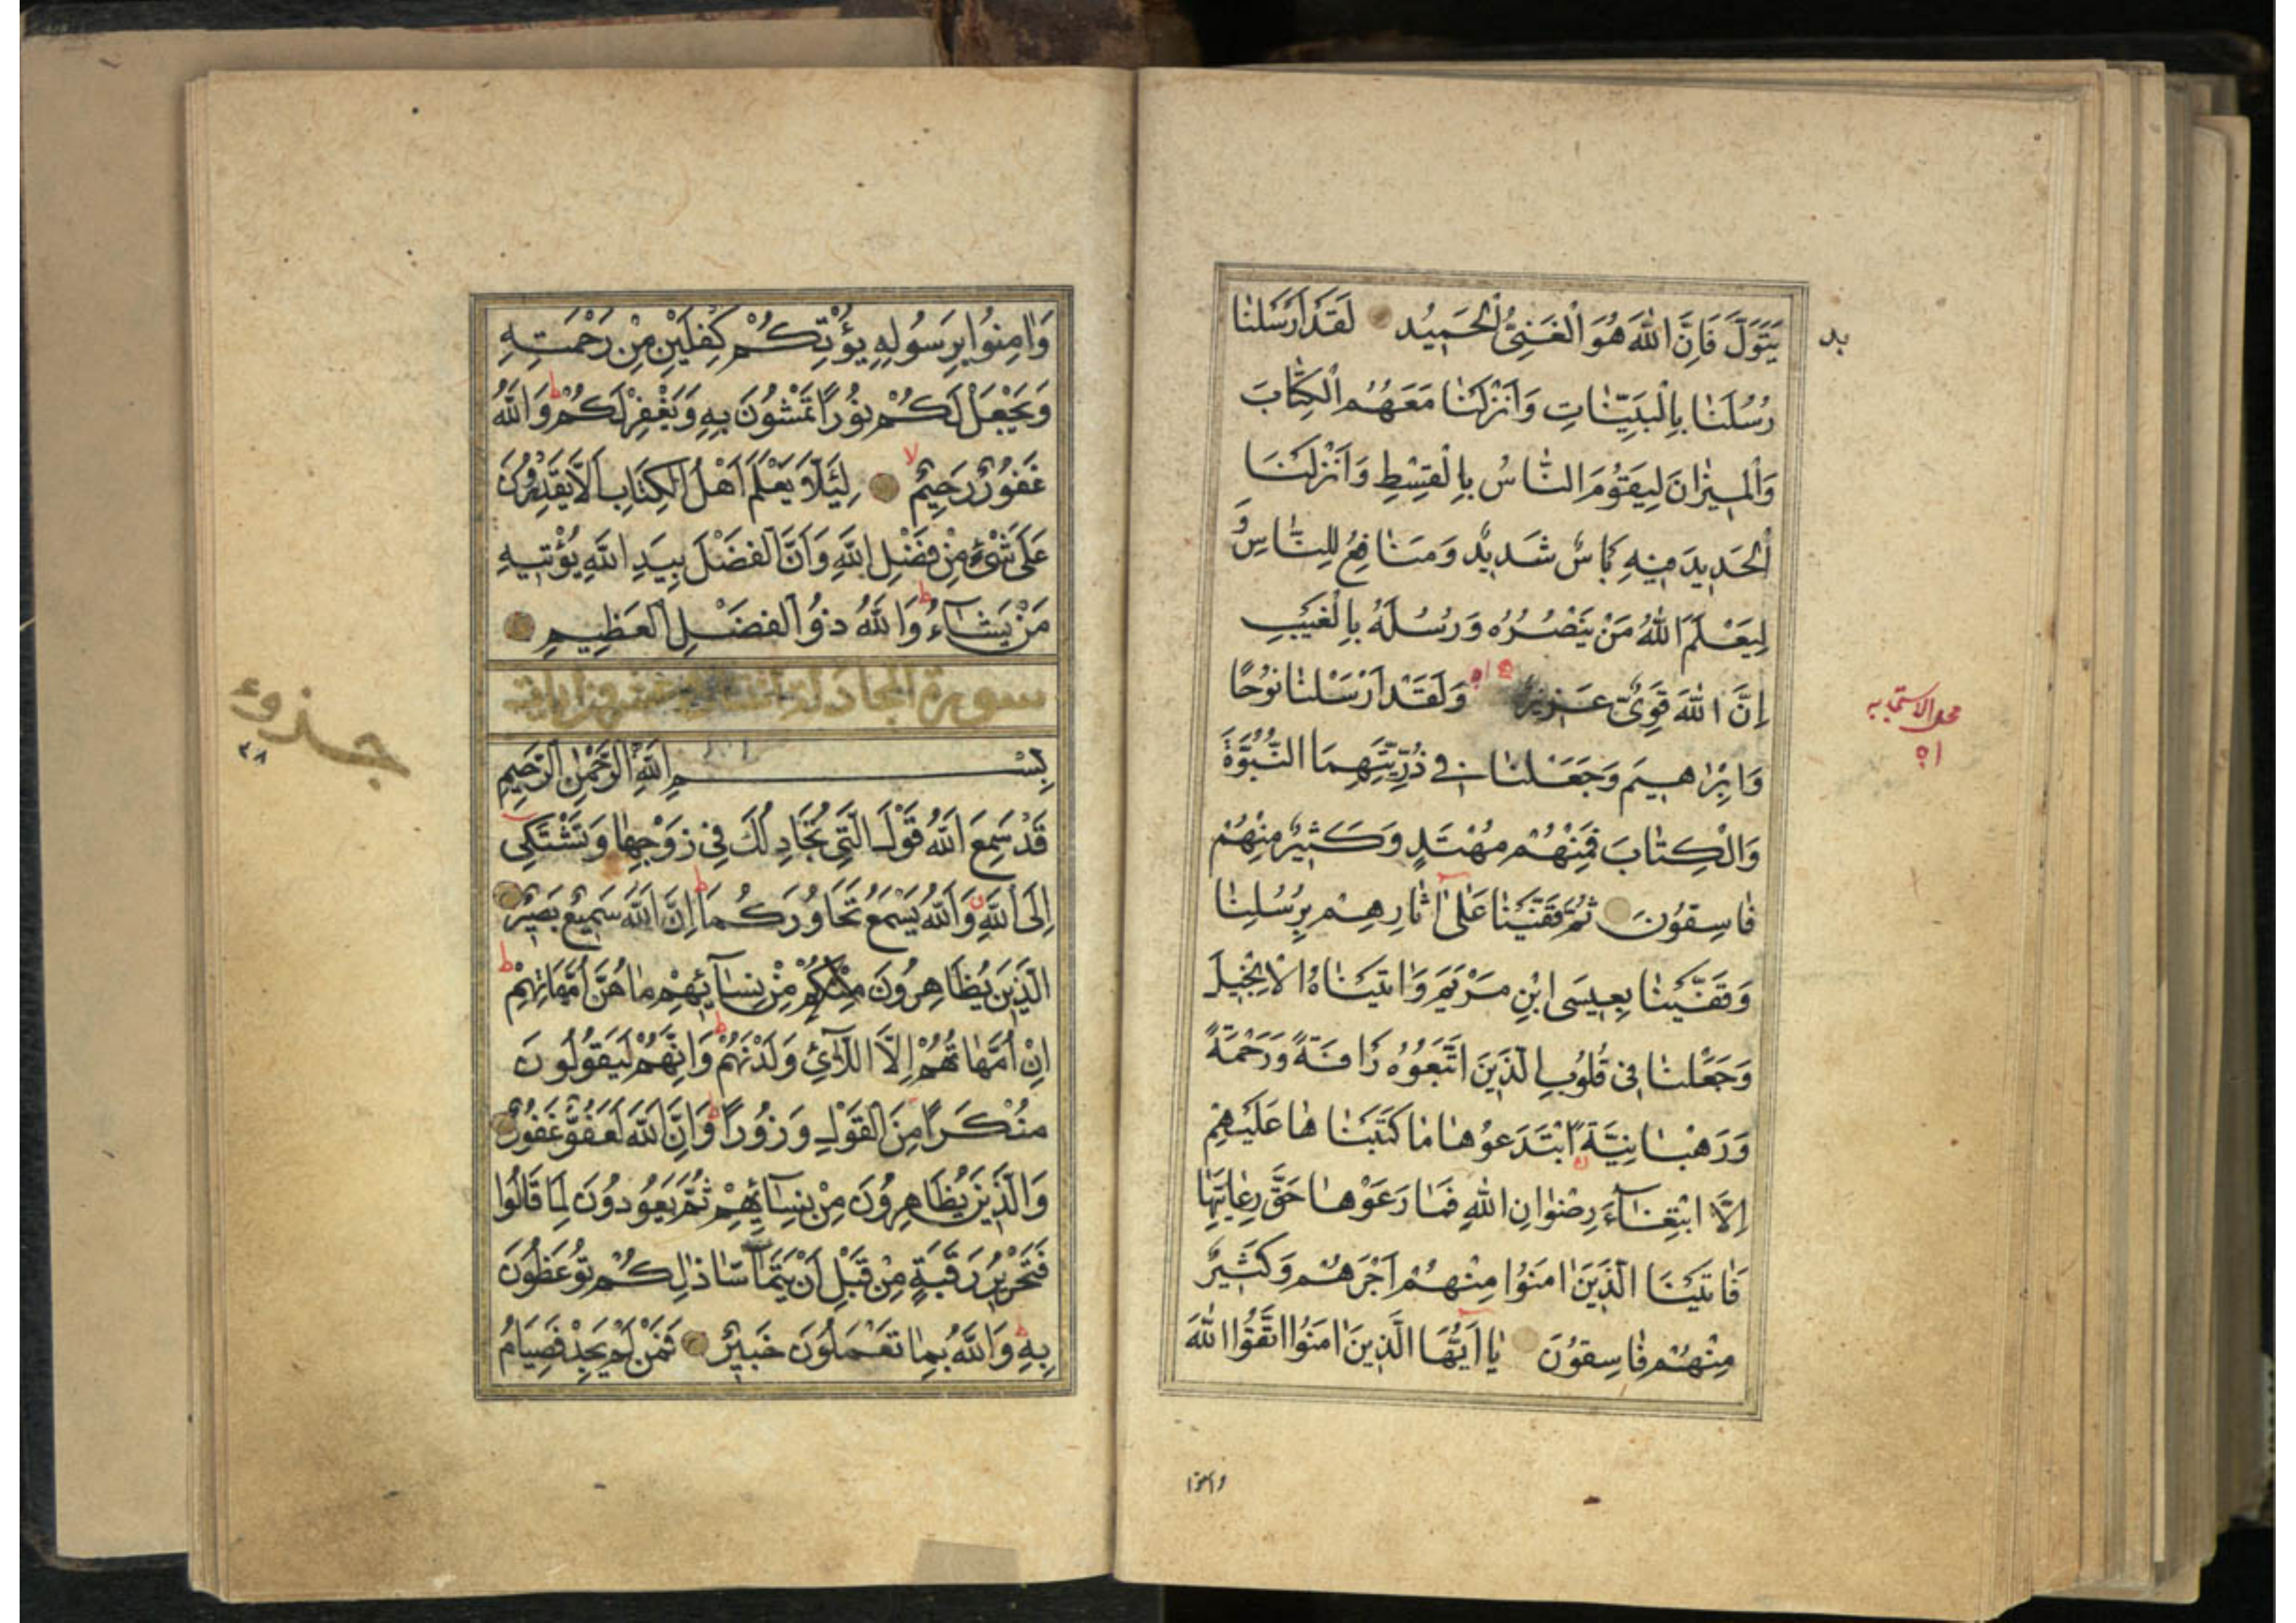 يَتَوَلَّ فَاِنَّ اللّٰهَ هُوَ الْغَنِىُّ الْحَمِيدُ لَقَدْ اَرْسَلْنَا
بد
رُسُلَنَا بِالْبَيِّنَاتِ وَاَنْزَلْنَا مَعَهُمُ الْكِتَابَ
وَالْمِيزَانَ لِيَقُومَ النَّاسُ بِالْقِسْطِ وَاَنْزَلْنَا
الْحَدِيدَ فِيهِ بَاْسٌ شَدِيدٌ وَمَنَافِعُ لِلنَّاسِ وَ
لِيَعْلَمَ اللّٰهُ مَنْ يَنْصُرُهُ وَرُسُلَهُ بِالْغَيْبِ
اِنَّ اللّٰهَ قَوِىٌّ عَزِيزٌ وَلَقَدْ اَرْسَلْنَا نُوحًا
محل
وَاِبْرَاهِيمَ وَجَعَلْنَا فِى ذُرِّيَّتِهِمَا النُّبُوَّةَ
وَالْكِتَابَ فَمِنْهُمْ مُهْتَدٍ وَكَثِيرٌ مِنْهُمْ
فَاسِقُونَ ثُمَّ قَفَّيْنَا عَلٰى اٰثَارِهِمْ بِرُسُلِنَا
وَقَفَّيْنَا بِعِيسَى ابْنِ مَرْيَمَ وَاٰتَيْنَاهُ الْاِنْجِيلَ
وَجَعَلْنَا فِى قُلُوبِ الَّذِينَ اتَّبَعُوهُ رَاْفَةً وَرَحْمَةً
وَرَهْبَانِيَّةً ابْتَدَعُوهَا مَا كَتَبْنَاهَا عَلَيْهِمْ
اِلَّا ابْتِغَاءَ رِضْوَانِ اللّٰهِ فَمَا رَعَوْهَا حَقَّ رِعَايَتِهَا
فَاٰتَيْنَا الَّذِينَ اٰمَنُوا مِنْهُمْ اَجْرَهُمْ وَكَثِيرٌ
مِنْهُمْ فَاسِقُونَ يَا اَيُّهَا الَّذِينَ اٰمَنُوا اتَّقُوا اللّٰهَ
وامنوا
وَاٰمِنُوا بِرَسُولِهِ يُؤْتِكُمْ كِفْلَيْنِ مِنْ رَحْمَتِهِ
وَيَجْعَلْ لَكُمْ نُورًا تَمْشُونَ بِهِ وَيَغْفِرْ لَكُمْ ط وَاللّٰهُ
غَفُورٌ رَحِيمٌ لا لِئَلَّا يَعْلَمَ اَهْلُ الْكِتَابِ اَلَّا يَقْدِرُونَ
عَلٰى شَىْءٍ مِنْ فَضْلِ اللّٰهِ وَاَنَّ الْفَضْلَ بِيَدِ اللّٰهِ يُؤْتِيهِ
مَنْ يَشَاءُ ط وَاللّٰهُ ذُو الْفَضْلِ الْعَظِيمِ
سورة المجادلة
جذوء
٢٨
بِسْمِ اللّٰهِ الرَّحْمٰنِ الرَّحِيمِ
قَدْ سَمِعَ اللّٰهُ قَوْلَ الَّتِى تُجَادِلُكَ فِى زَوْجِهَا وَتَشْتَكِى
اِلَى اللّٰهِ وَاللّٰهُ يَسْمَعُ تَحَاوُرَكُمَا ط اِنَّ اللّٰهَ سَمِيعٌ بَصِيرٌ
الَّذِينَ يُظَاهِرُونَ مِنْكُمْ مِنْ نِسَائِهِمْ مَا هُنَّ اُمَّهَاتِهِمْ ط
اِنْ اُمَّهَاتُهُمْ اِلَّا اللَّائِى وَلَدْنَهُمْ ط وَاِنَّهُمْ لَيَقُولُونَ
مُنْكَرًا مِنَ الْقَوْلِ وَزُورًا ط وَاِنَّ اللّٰهَ لَعَفُوٌّ غَفُورٌ
وَالَّذِينَ يُظَاهِرُونَ مِنْ نِسَائِهِمْ ثُمَّ يَعُودُونَ لِمَا قَالُوا
فَتَحْرِيرُ رَقَبَةٍ مِنْ قَبْلِ اَنْ يَتَمَاسَّا ذٰلِكُمْ تُوعَظُونَ
بِهِ ط وَاللّٰهُ بِمَا تَعْمَلُونَ خَبِيرٌ فَمَنْ لَمْ يَجِدْ فَصِيَامُ